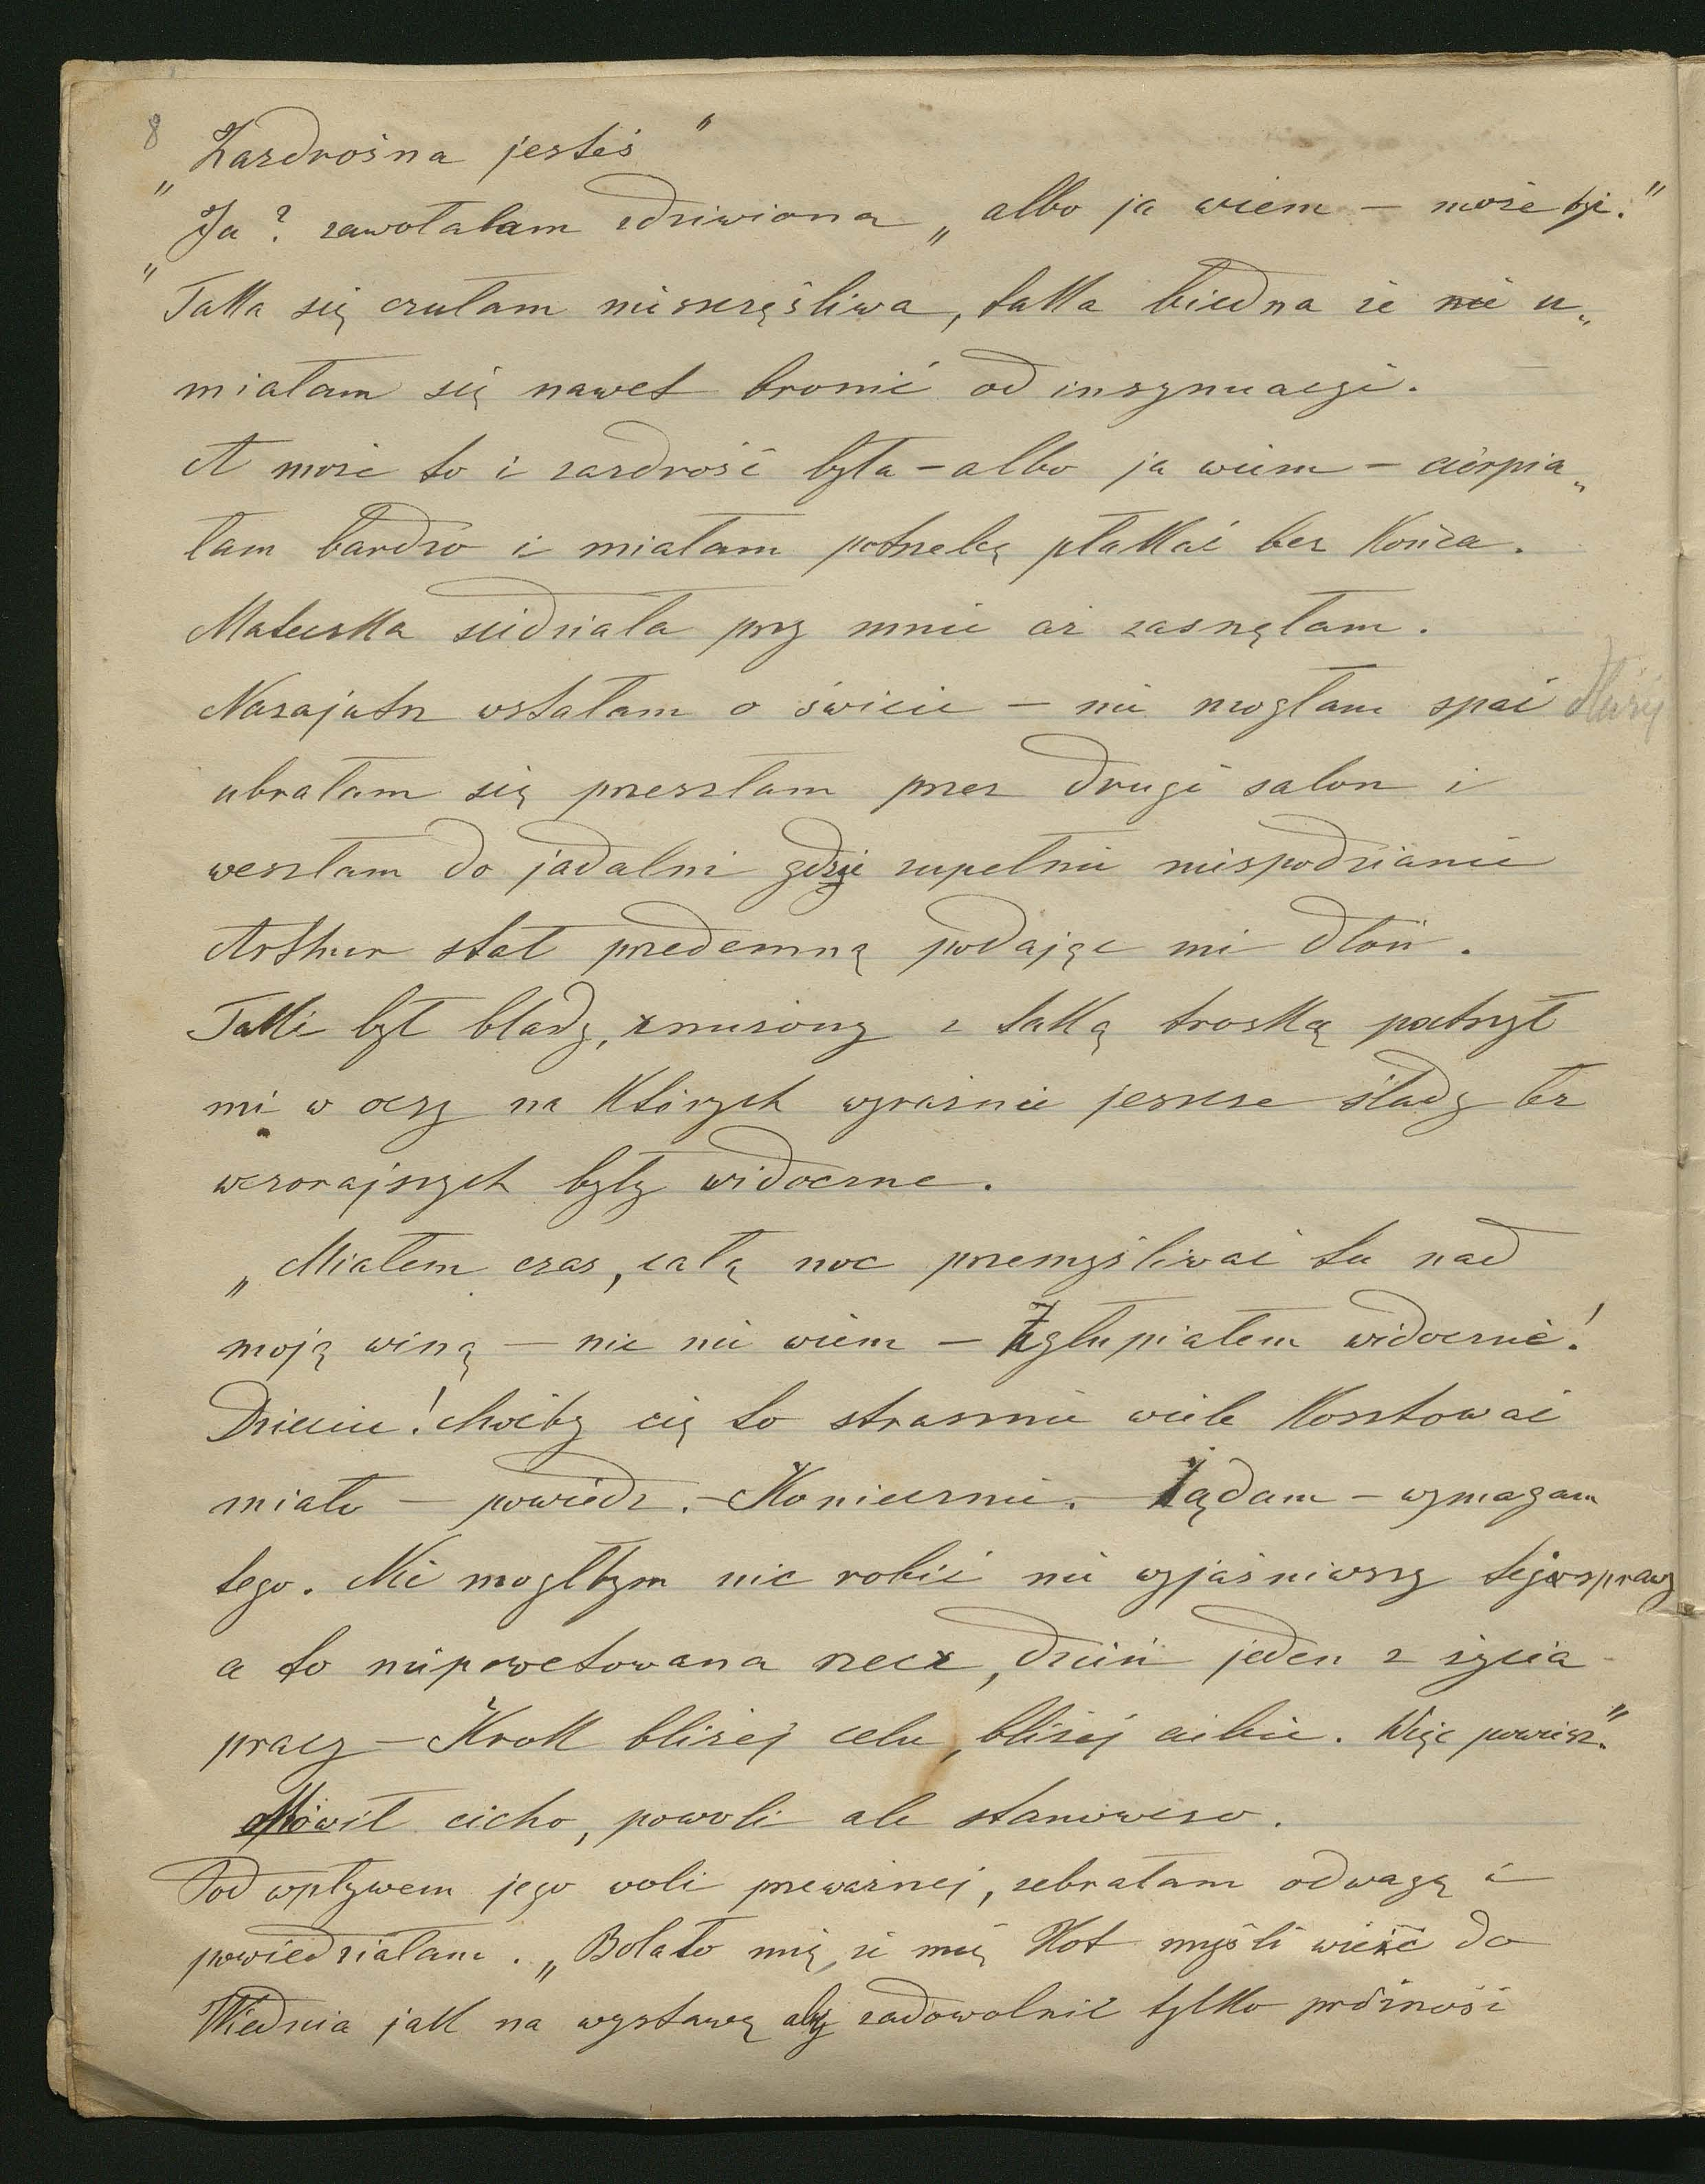 8
„Zazdrośna jesteś"
„Ja? zawołałam zdziwiona „albo ja wiem – może być."
Taka się czułam nieszczęśliwa, taka biedna że nie u„
miałam się nawet bronić od insynuacyi.
A może to i zazdrość była – albo ja wiem – cierpia„
łam bardzo i miałam potrzebę płakać bez końca.
Mateczka siedziała przy mnie aż zasnęłam.
Nazajutrz wstałam o świcie – nie mogłam spać dłużej
ubrałam się przeszłam przez drugi salon i
weszłam do jadalni gdzie zupełnie niespodzianie
Arthur stał przedemną podając mi dłoń.
Taki był blady, zmużony z taką troską patrzył
mi w oczy na których wyraźnie jeszcze ślady łez
wczorajszych były widoczne.
„Miałem czas, całą noc przemyśliwać tu nad
moją winą – nic nie wiem – Zgłupiałem widocznie!
Dziecię! choćby cię to strasznie wiele kosztować
miało – powiedz. – Koniecznie. Żądam – wymagam
tego. Nie mogłbym nic robić nie wyjaśniwszy tej sprawy
a to niepowetowana rzecz, dzień jeden z życia
pracy – Krok bliżej celu, bliżej ciebie. Więc powiesz."
Mówił cicho, powoli ale stanowczo.
Pod wpływem jego woli przeważnej, zebrałam odwagę i
powiedziałam. „Bolało mię, że mię Kot myśli wieźć do
Wiednia jak na wystawę aby zadowolnić tylko próżność